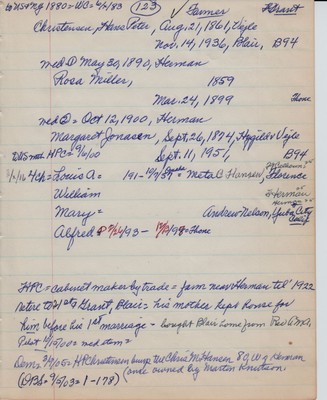 to US + Ng 1880 = WB = 6/2/83 (123) ✓ Farmer F Grant
Christensen, Hans Peter, Aug. 21, 1861, Vejle
Nov. 14, 1936, Blair, B94
med ① May 30, 1890, Herman
Rosa Miller, 1859
Mar. 24, 1899 Thone
med ② = Oct 12, 1900, Herman
Margaret Jonasen, Sept, 26, 1874, Hygild Vejle
HPC = 9/6/00 Sept. 11, 1951, B94
Louis A = 191- Meta B Hansen, Florence
William = Herman
Mary = Andrew Nelson, Yuba City Calif
Alfred = Thone
HPC = cabinet maker by trade = farm near Herman til' 1922
retire to Grant, Blair = his mother kept house for
him before his 1st marriage - bought Blair home from
Pilot 9/15/00 = med item =
Dem = 3/9/05 = HP Christensen buys the Chris McHansen 80, W of Herman
(once owned by Martin Knutson
(DPS = 9/5/03 = 1-178)